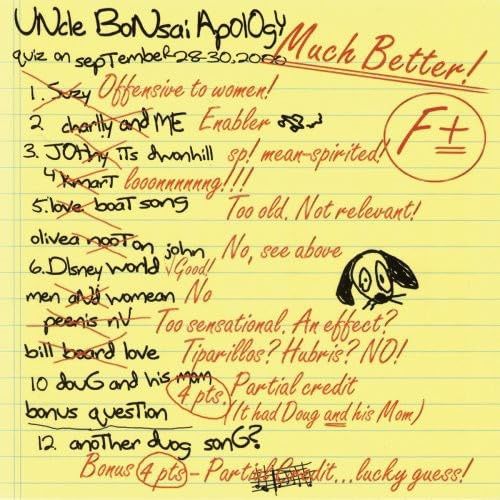 UNcle BoNsai ApolOgy
Much Better!
quiz on sepTember 28-30, 2000
F±
1. Suzy Offensive to women!
2 charlly and ME Enabler
3. JOthny iTs dwonhill sp! mean-spirited!
4 Kmart looonnnnnng!!!
5. love boaT song Too old. Not relevant!
olivea nooTon john No, see above
6. DIsney world √Good!
men aNd womean No
peenis nV Too sensational. An effect?
bill board love Tiparillos? Hubris? NO!
10 douG and his mom 4 pts. Partial credit
bonus quesTion (It had Doug and his Mom)
12. anoTher duog sonG?
Bonus 4 pts - Partial Credit...lucky guess!